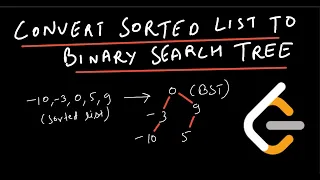 CONVERT SORTED LIST TO
BINARY SEARCH TREE
-10,-3, 0, 5, 9
(sorted list)
0 (BST)
-3 9
-10 5